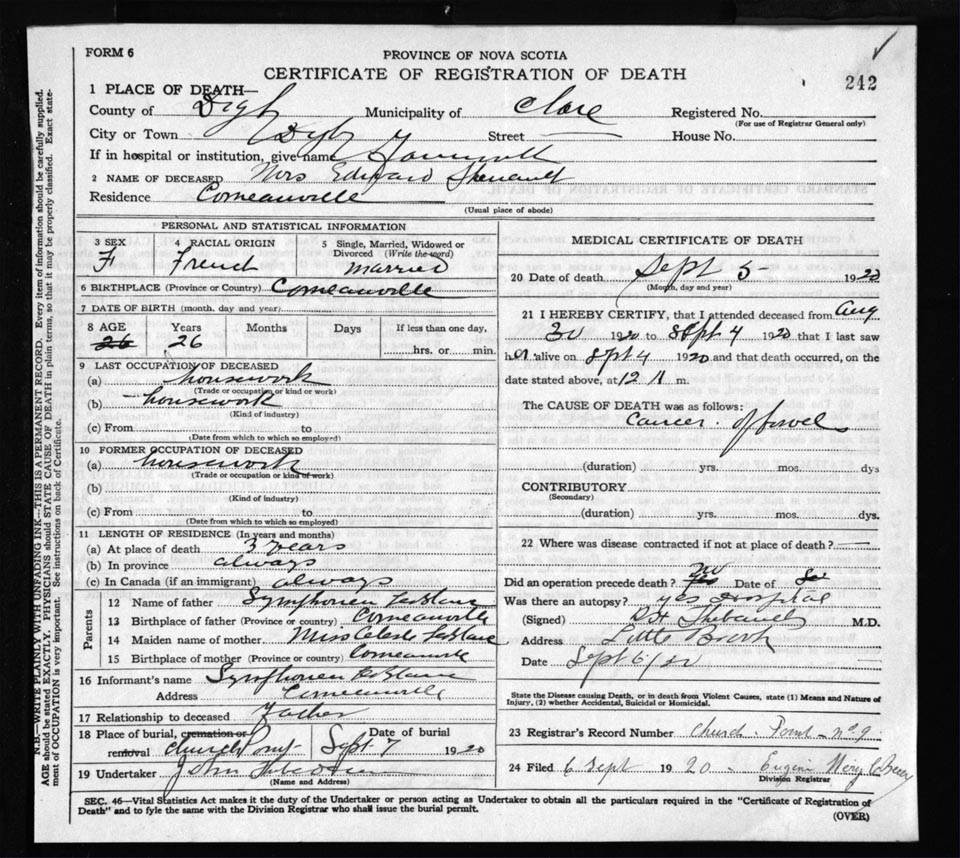 FORM 6
PROVINCE OF NOVA SCOTIA
CERTIFICATE OF REGISTRATION OF DEATH
242
1 PLACE OF DEATH—
County of Digby Municipality of Clare Registered No.
(For use of Registrar General only)
City or Town Digby Street — House No.
If in hospital or institution, give name
2 NAME OF DECEASED Mrs Edward
Residence Comeauville
(Usual place of abode)
PERSONAL AND STATISTICAL INFORMATION
3 SEX F
4 RACIAL ORIGIN French
5 Single, Married, Widowed or Divorced (Write the word) married
6 BIRTHPLACE (Province or Country) Comeauville
7 DATE OF BIRTH (month, day and year)
8 AGE Years Months Days If less than one day,
26 26 hrs. or min.
9 LAST OCCUPATION OF DECEASED
(a) housework
(Trade or occupation or kind of work)
(b) housework
(Kind of industry)
(c) From to
(Date from which to which so employed)
10 FORMER OCCUPATION OF DECEASED
(a) housework
(Trade or occupation or kind of work)
(b)
(Kind of industry)
(c) From to
(Date from which to which so employed)
11 LENGTH OF RESIDENCE (In years and months)
(a) At place of death 3 years
(b) In province always
(c) In Canada (if an immigrant) always
Parents
12 Name of father Symphorien LeBlanc
13 Birthplace of father (Province or country) Comeauville
14 Maiden name of mother Miss Celeste LeBlanc
15 Birthplace of mother (Province or country) Comeauville
16 Informant's name Symphorien LeBlanc
Address Comeauville
17 Relationship to deceased Father
18 Place of burial, cremation or removal Church Point
Date of burial Sept 7 1920
19 Undertaker John
(Name and Address)
MEDICAL CERTIFICATE OF DEATH
20 Date of death Sept 5 1920
(Month, day and year)
21 I HEREBY CERTIFY, that I attended deceased from Aug
30 1920 to Sept 4 1920 that I last saw
her alive on Sept 4 1920 and that death occurred, on the
date stated above, at 12 m.
The CAUSE OF DEATH was as follows:
Cancer of bowels
(duration) yrs. mos. dys
CONTRIBUTORY
(Secondary)
(duration) yrs. mos. dys.
22 Where was disease contracted if not at place of death? —
Did an operation precede death? yes no Date of
Was there an autopsy? yes Hospital
(Signed) Thibault M.D.
Address Little Brook
Date Sept 6/20
State the Disease causing Death, or in death from Violent Causes, state (1) Means and Nature of
Injury, (2) whether Accidental, Suicidal or Homicidal.
23 Registrar's Record Number Church Point no 9
24 Filed 6 Sept 1920 - Eugenie
Division Registrar
SEC. 46—Vital Statistics Act makes it the duty of the Undertaker or person acting as Undertaker to obtain all the particulars required in the "Certificate of Registration of
Death" and to fyle the same with the Division Registrar who shall issue the burial permit.
(OVER)
N.B.—WRITE PLAINLY WITH UNFADING INK—THIS IS A PERMANENT RECORD. Every item of information should be carefully supplied.
AGE should be stated EXACTLY. PHYSICIANS should STATE CAUSE OF DEATH in plain terms, so that it may be properly classified. Exact state-
ment of OCCUPATION is very important. See instructions on back of Certificate.